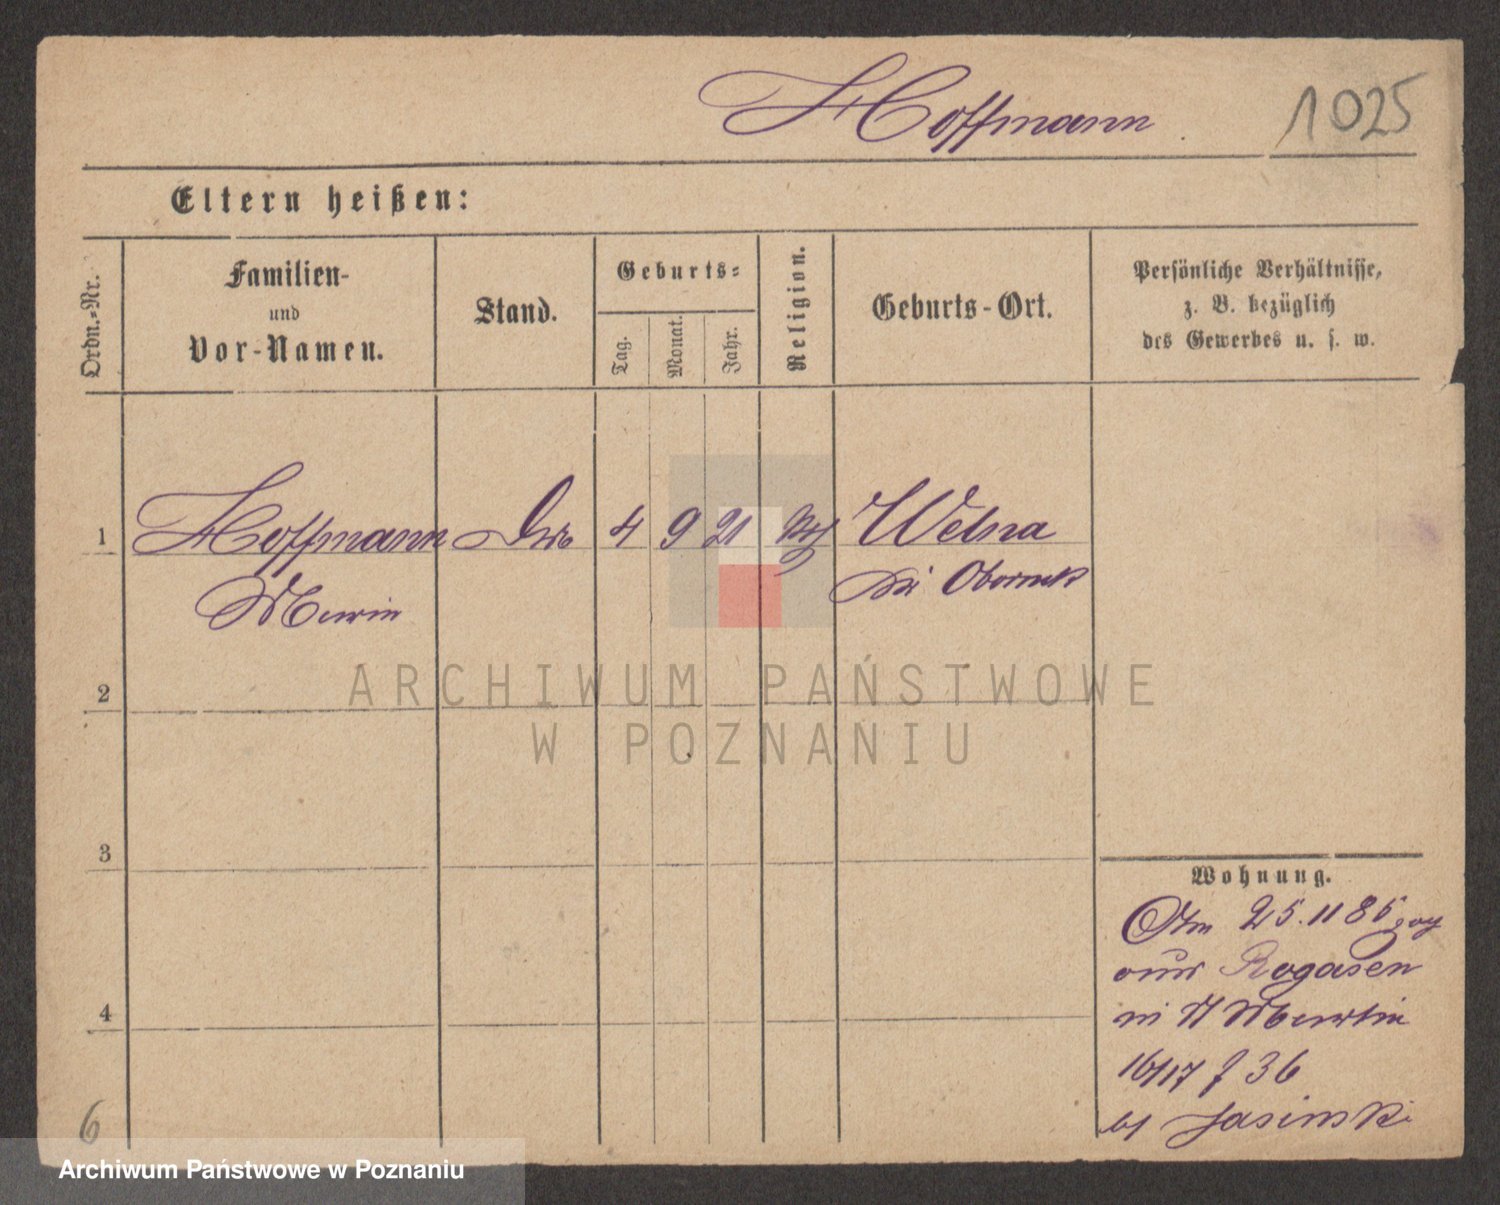 Hoffmann
1025
Eltern heißen:
Ordn.-Nr.
Familien-
und
Vor-Namen.
Stand.
Geburts-
Tag.
Monat.
Jahr.
Religion.
Geburts-Ort.
Persönliche Verhältnisse,
z. B. bezüglich
des Gewerbes u. s. w.
1
Hoffmann
4 9 21
Welna
Obornik
2
ARCHIWUM PAŃSTWOWE
W POZNANIU
3
Wohnung.
25. 11 85
Rogasen
4
Martin
16/17 36
Jasinski
6
Archiwum Państwowe w Poznaniu